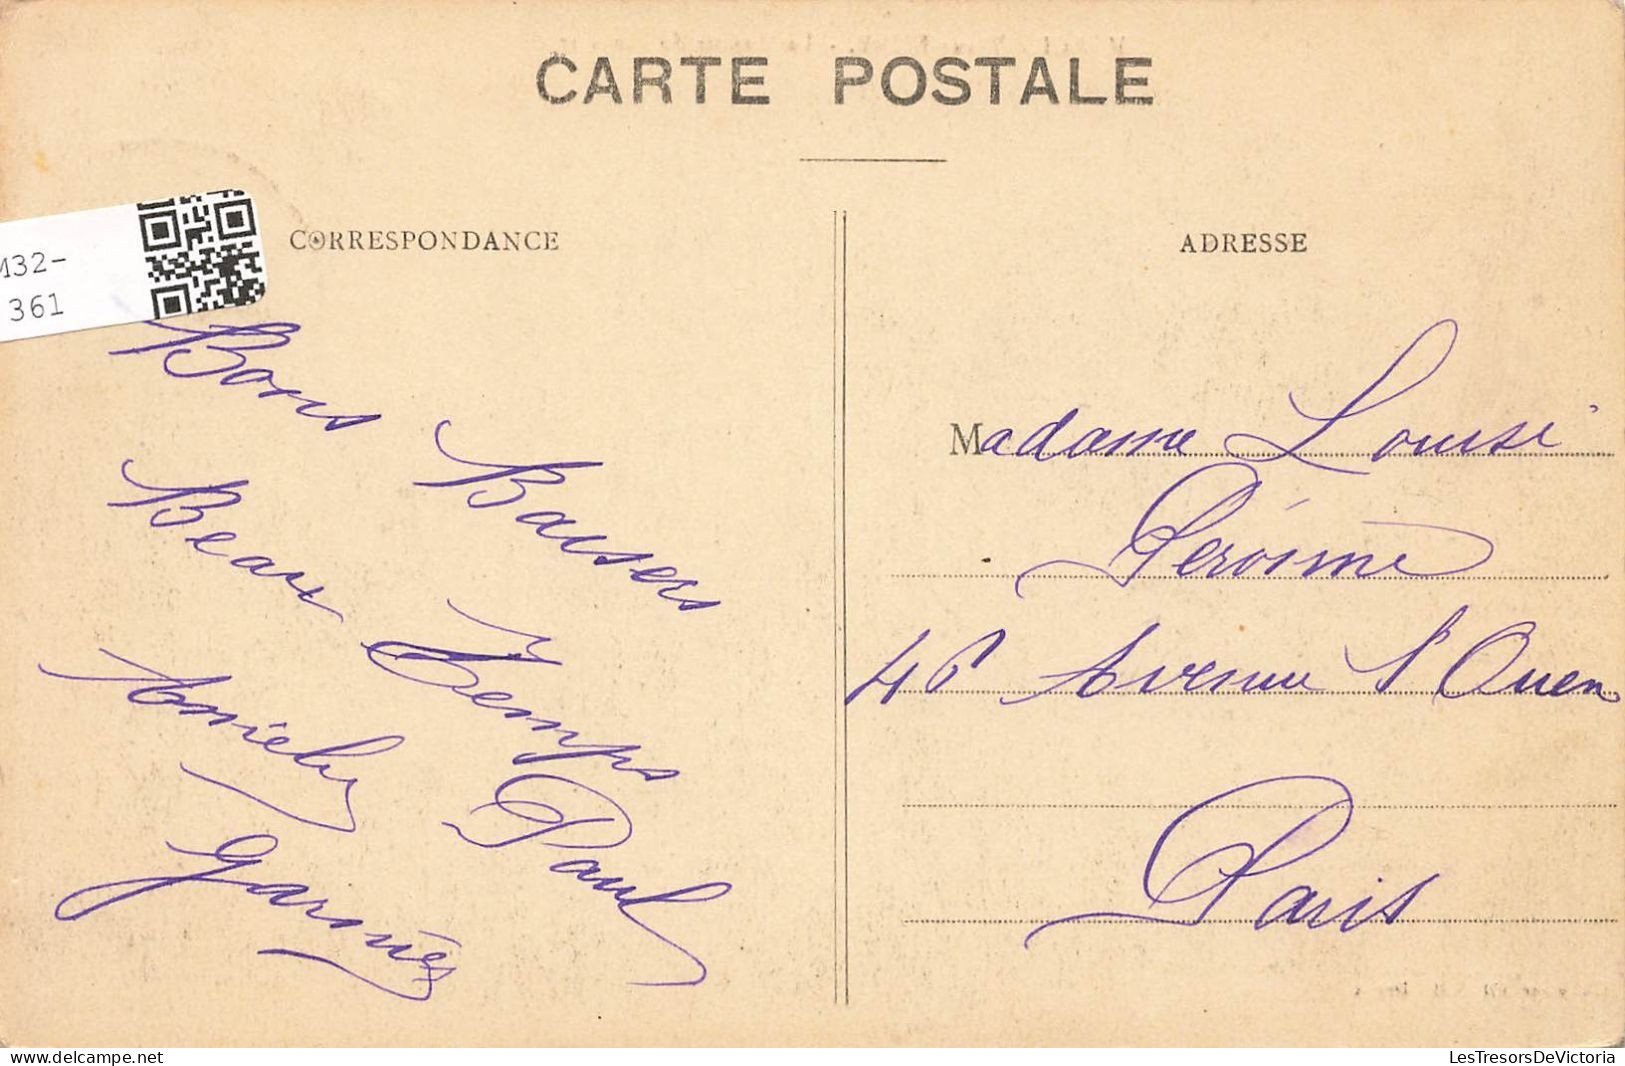 CARTE POSTALE
CORRESPONDANCE
ADRESSE
M32-
361
Bons Baisers
Beau Temps
Paul
Garnier
Madame Louise
Peronne
46 Avenue St Ouen
Paris
LesTresorsDeVictoria
www.delcampe.net